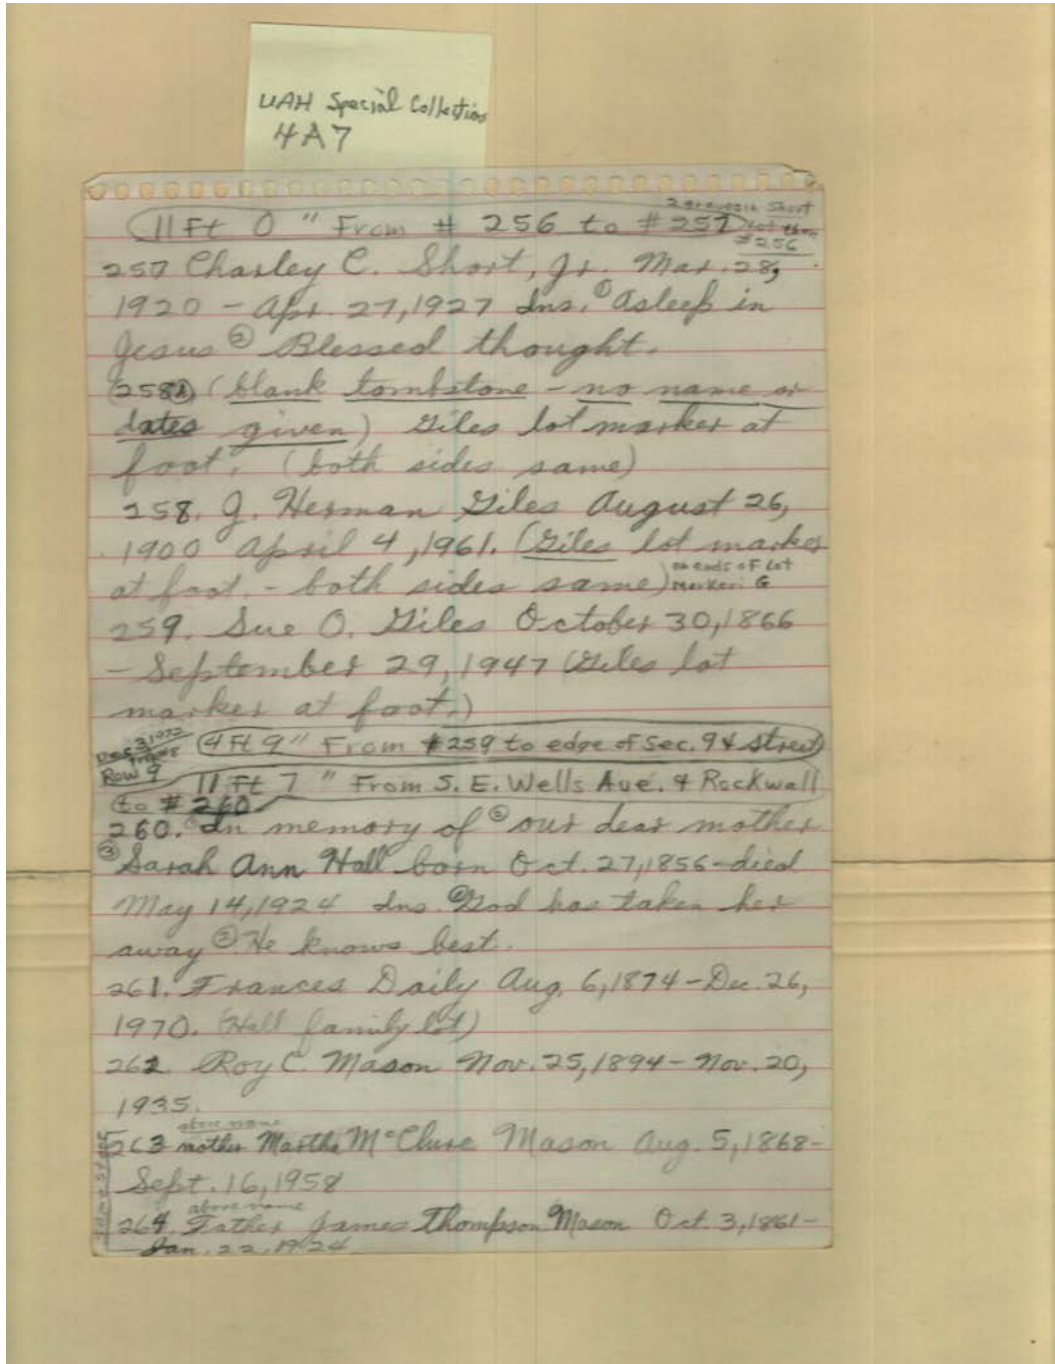 UAH Special Collection
4A7
2 graves in Short
lot then
#256
11 Ft 0" From # 256 to #257
257 Charley C. Short, Jr. Mar. 28,
1920 - Apr. 27, 1927 Ins. ① Asleep in
Jesus ② Blessed thought.
(258A) (blank tombstone - no name or
dates given) Giles lot marker at
foot. (both sides same)
258. J. Herman Giles August 26,
1900 April 4, 1961. (Giles lot marker
at foot. - both sides same) on ends of Lot
marker: G
259. Sue O. Giles October 30, 1866
- September 29, 1947 (Giles lot
marker at foot.)
Dec 3 1972
4 Ft 9" From #259 to edge of Sec. 9 & Street
Row 9
11 Ft 7" From S. E. Wells Ave. & Rockwall
to # 260
260. ① In memory of ② our dear mother
③ Sarah Ann Hall born Oct. 27, 1856 - died
May 14, 1924 Ins. ① God has taken her
away ② He knows best.
261. Frances Daily Aug. 6, 1874 - Dec. 26,
1970. (Hall family lot)
262. Roy C. Mason Nov. 25, 1894 - Nov. 20,
1935.
above name
263 mother Martha McClure Mason Aug. 5, 1868 -
Sept. 16, 1958
above name
264. Father James Thompson Mason Oct. 3, 1861 -
Jan. 22, 1924